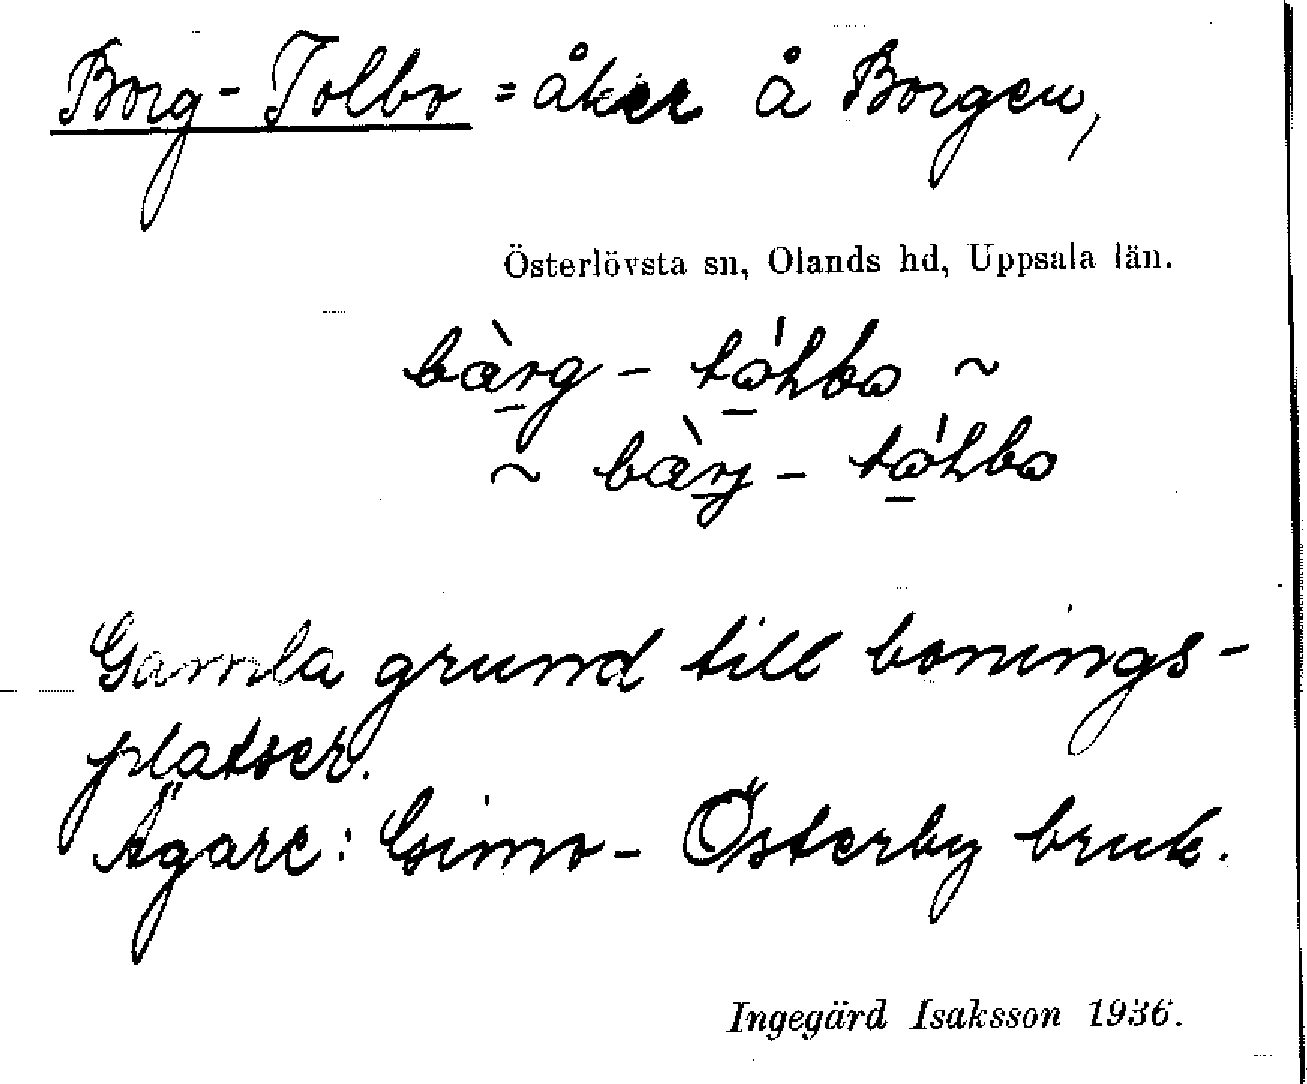 Borg-Tolbo = åker å Borgen,
Österlövsta sn, Olands hd, Uppsala län.
Gamla grund till bonings-
platser.
Ägare: Gimo-Österby bruk.
Ingegärd Isaksson 1936.